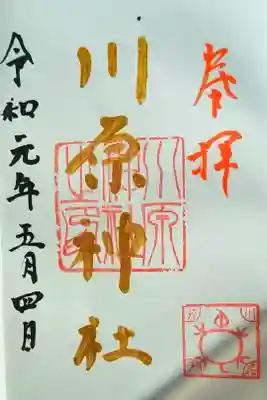 奉拝
川原神社
川原
神社
之印
令和元年五月四日